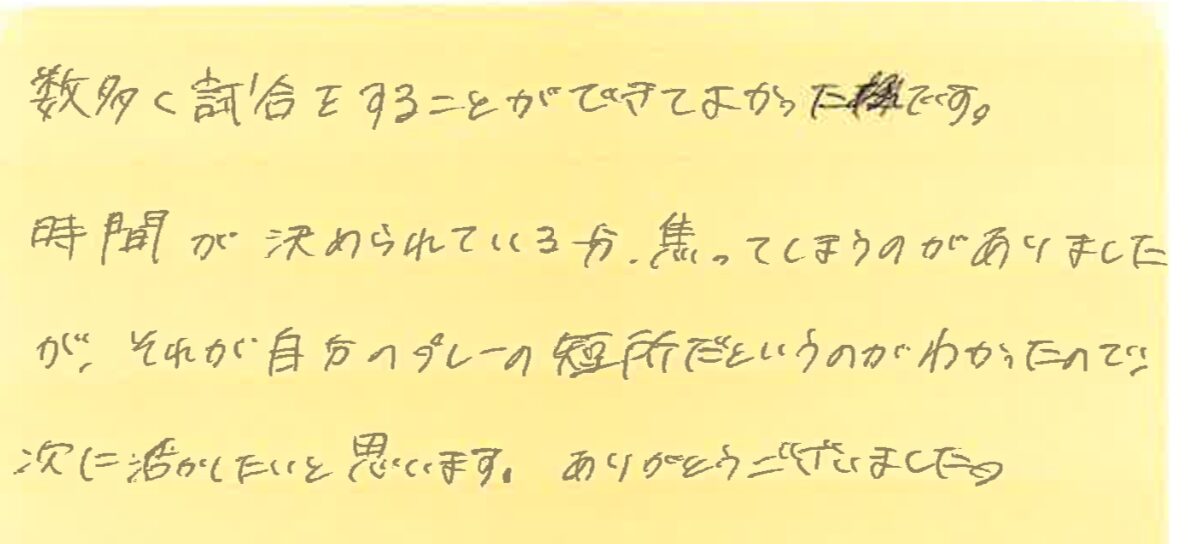 数多く試合をすることができてよかったです。
時間が決められている分、焦ってしまうのがありました
が、それが自分のプレーの短所だというのがわかったので、
次に活かしたいと思います。ありがとうございました。